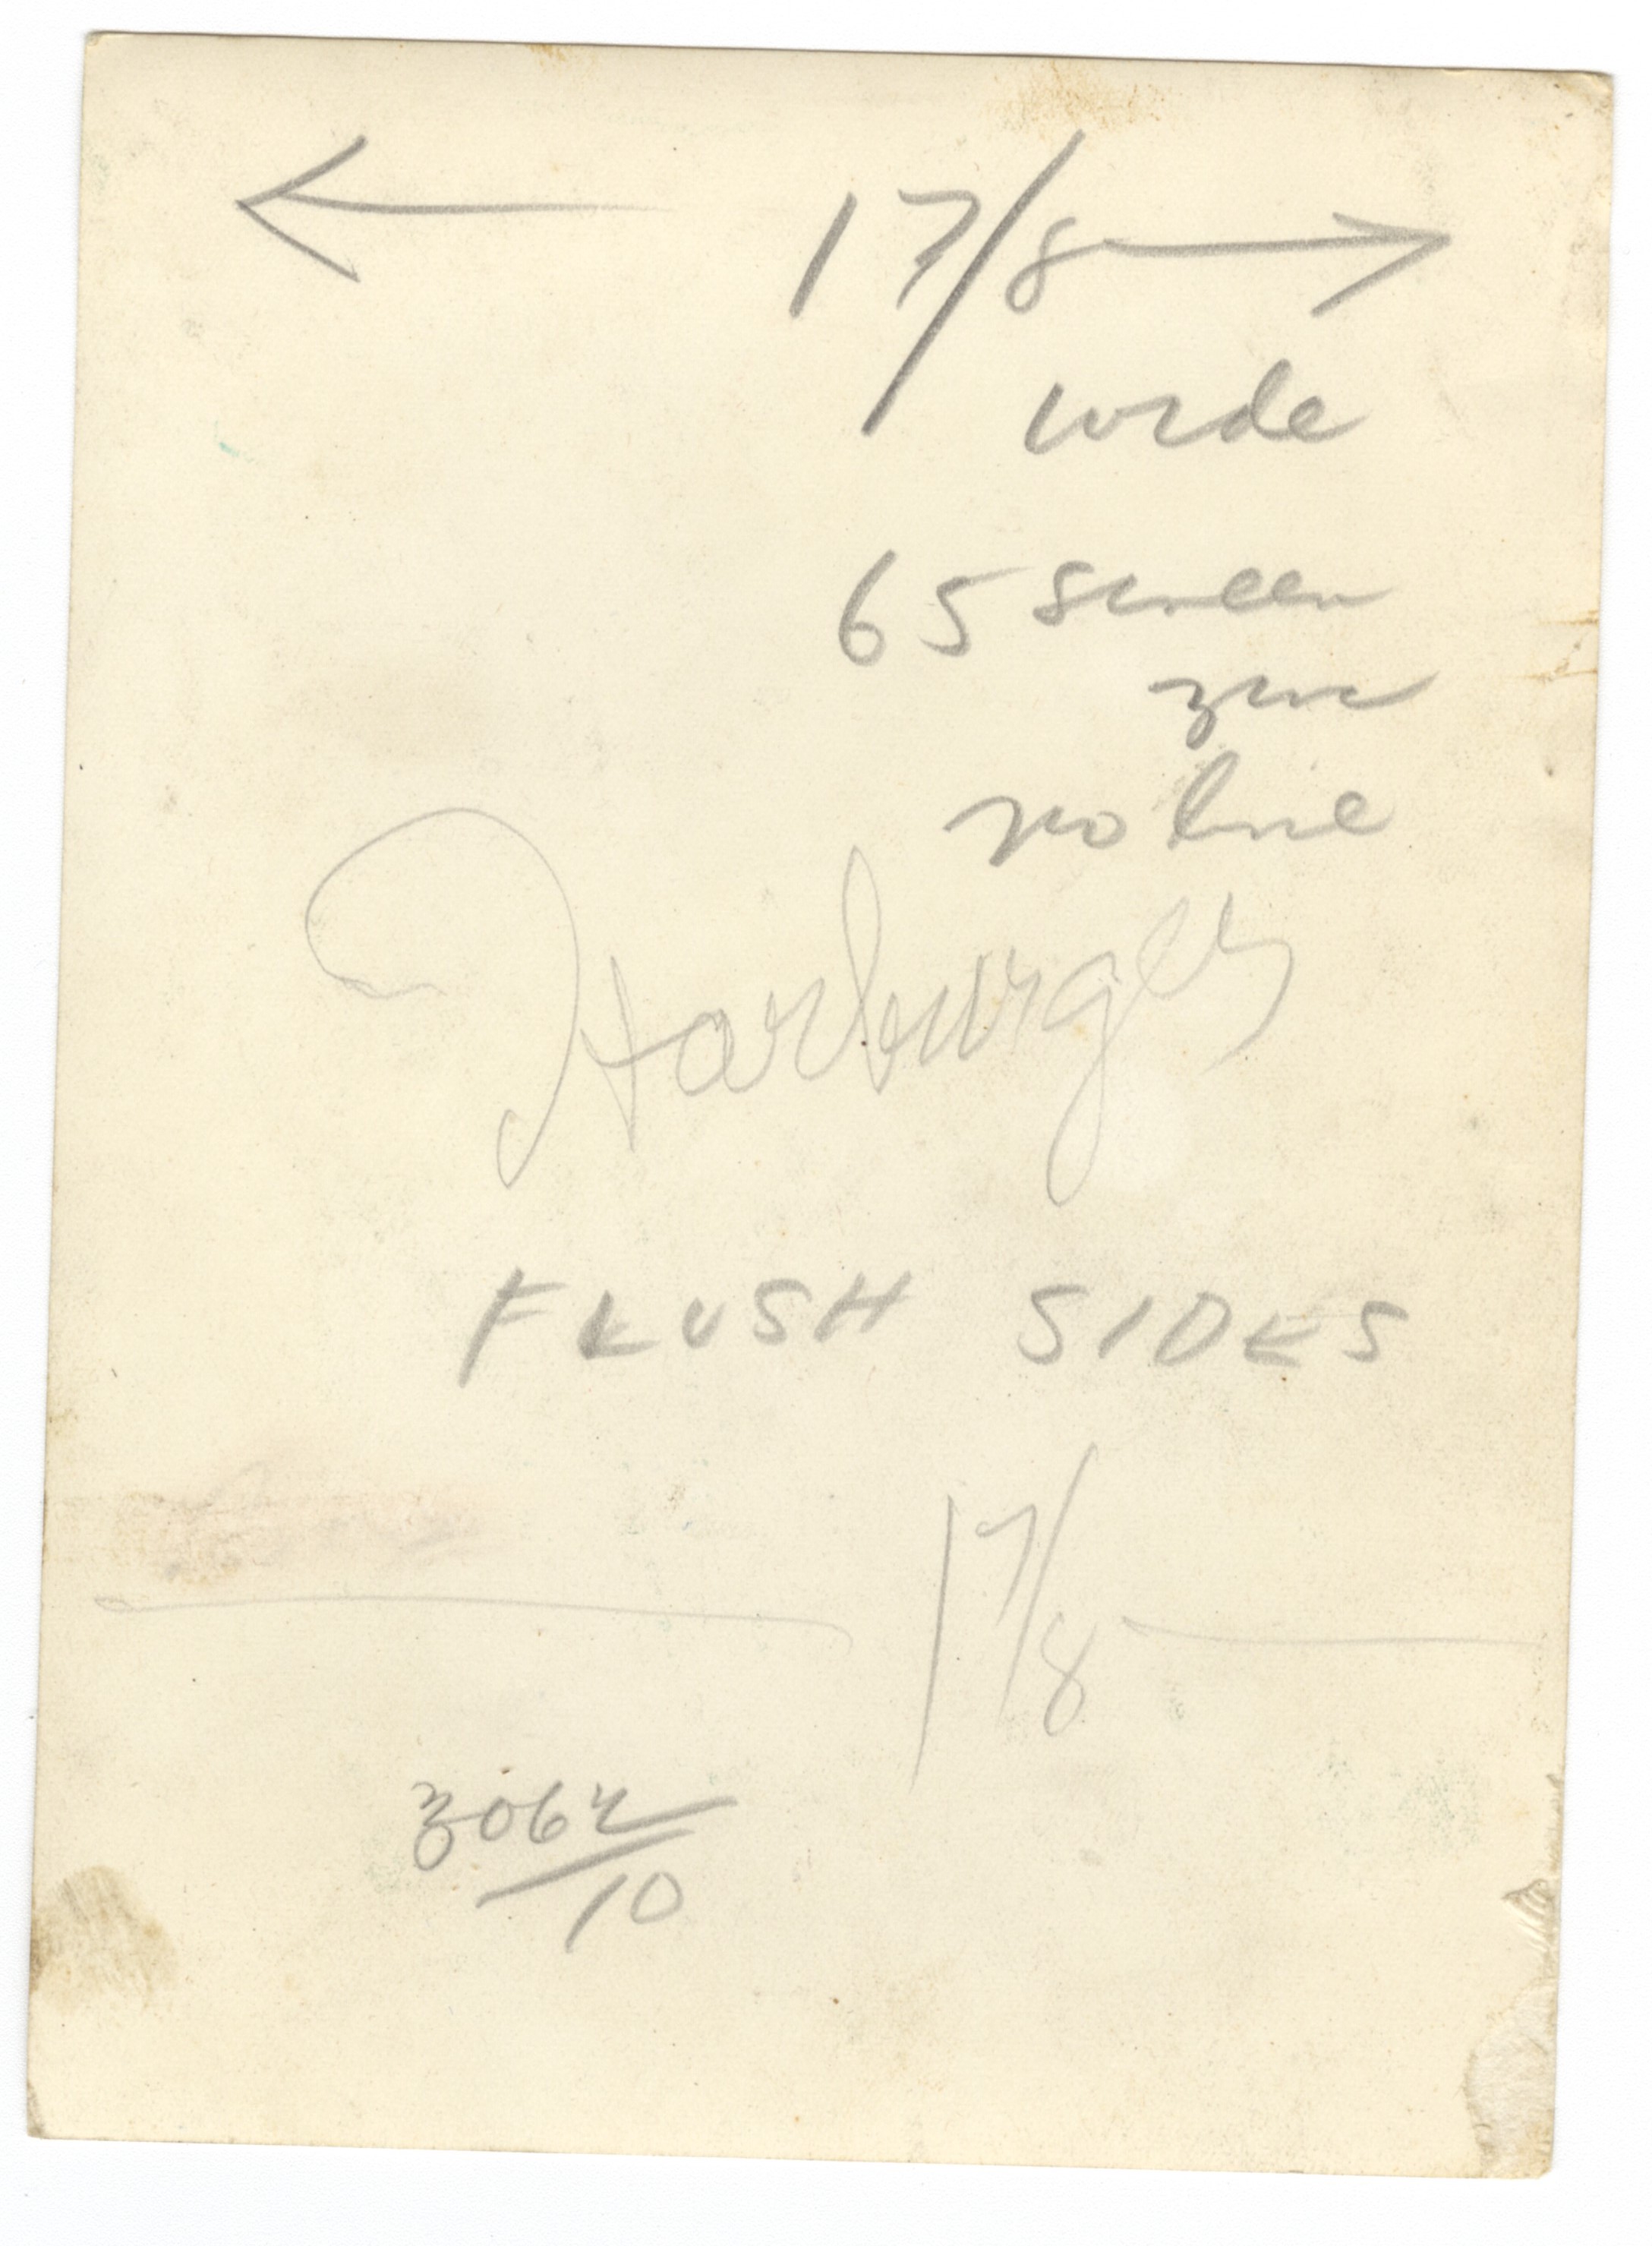 ← 1 7/8 →
wide
65 screen
zinc
no line
Harburger
FLUSH SIDES
1 7/8
3062
10